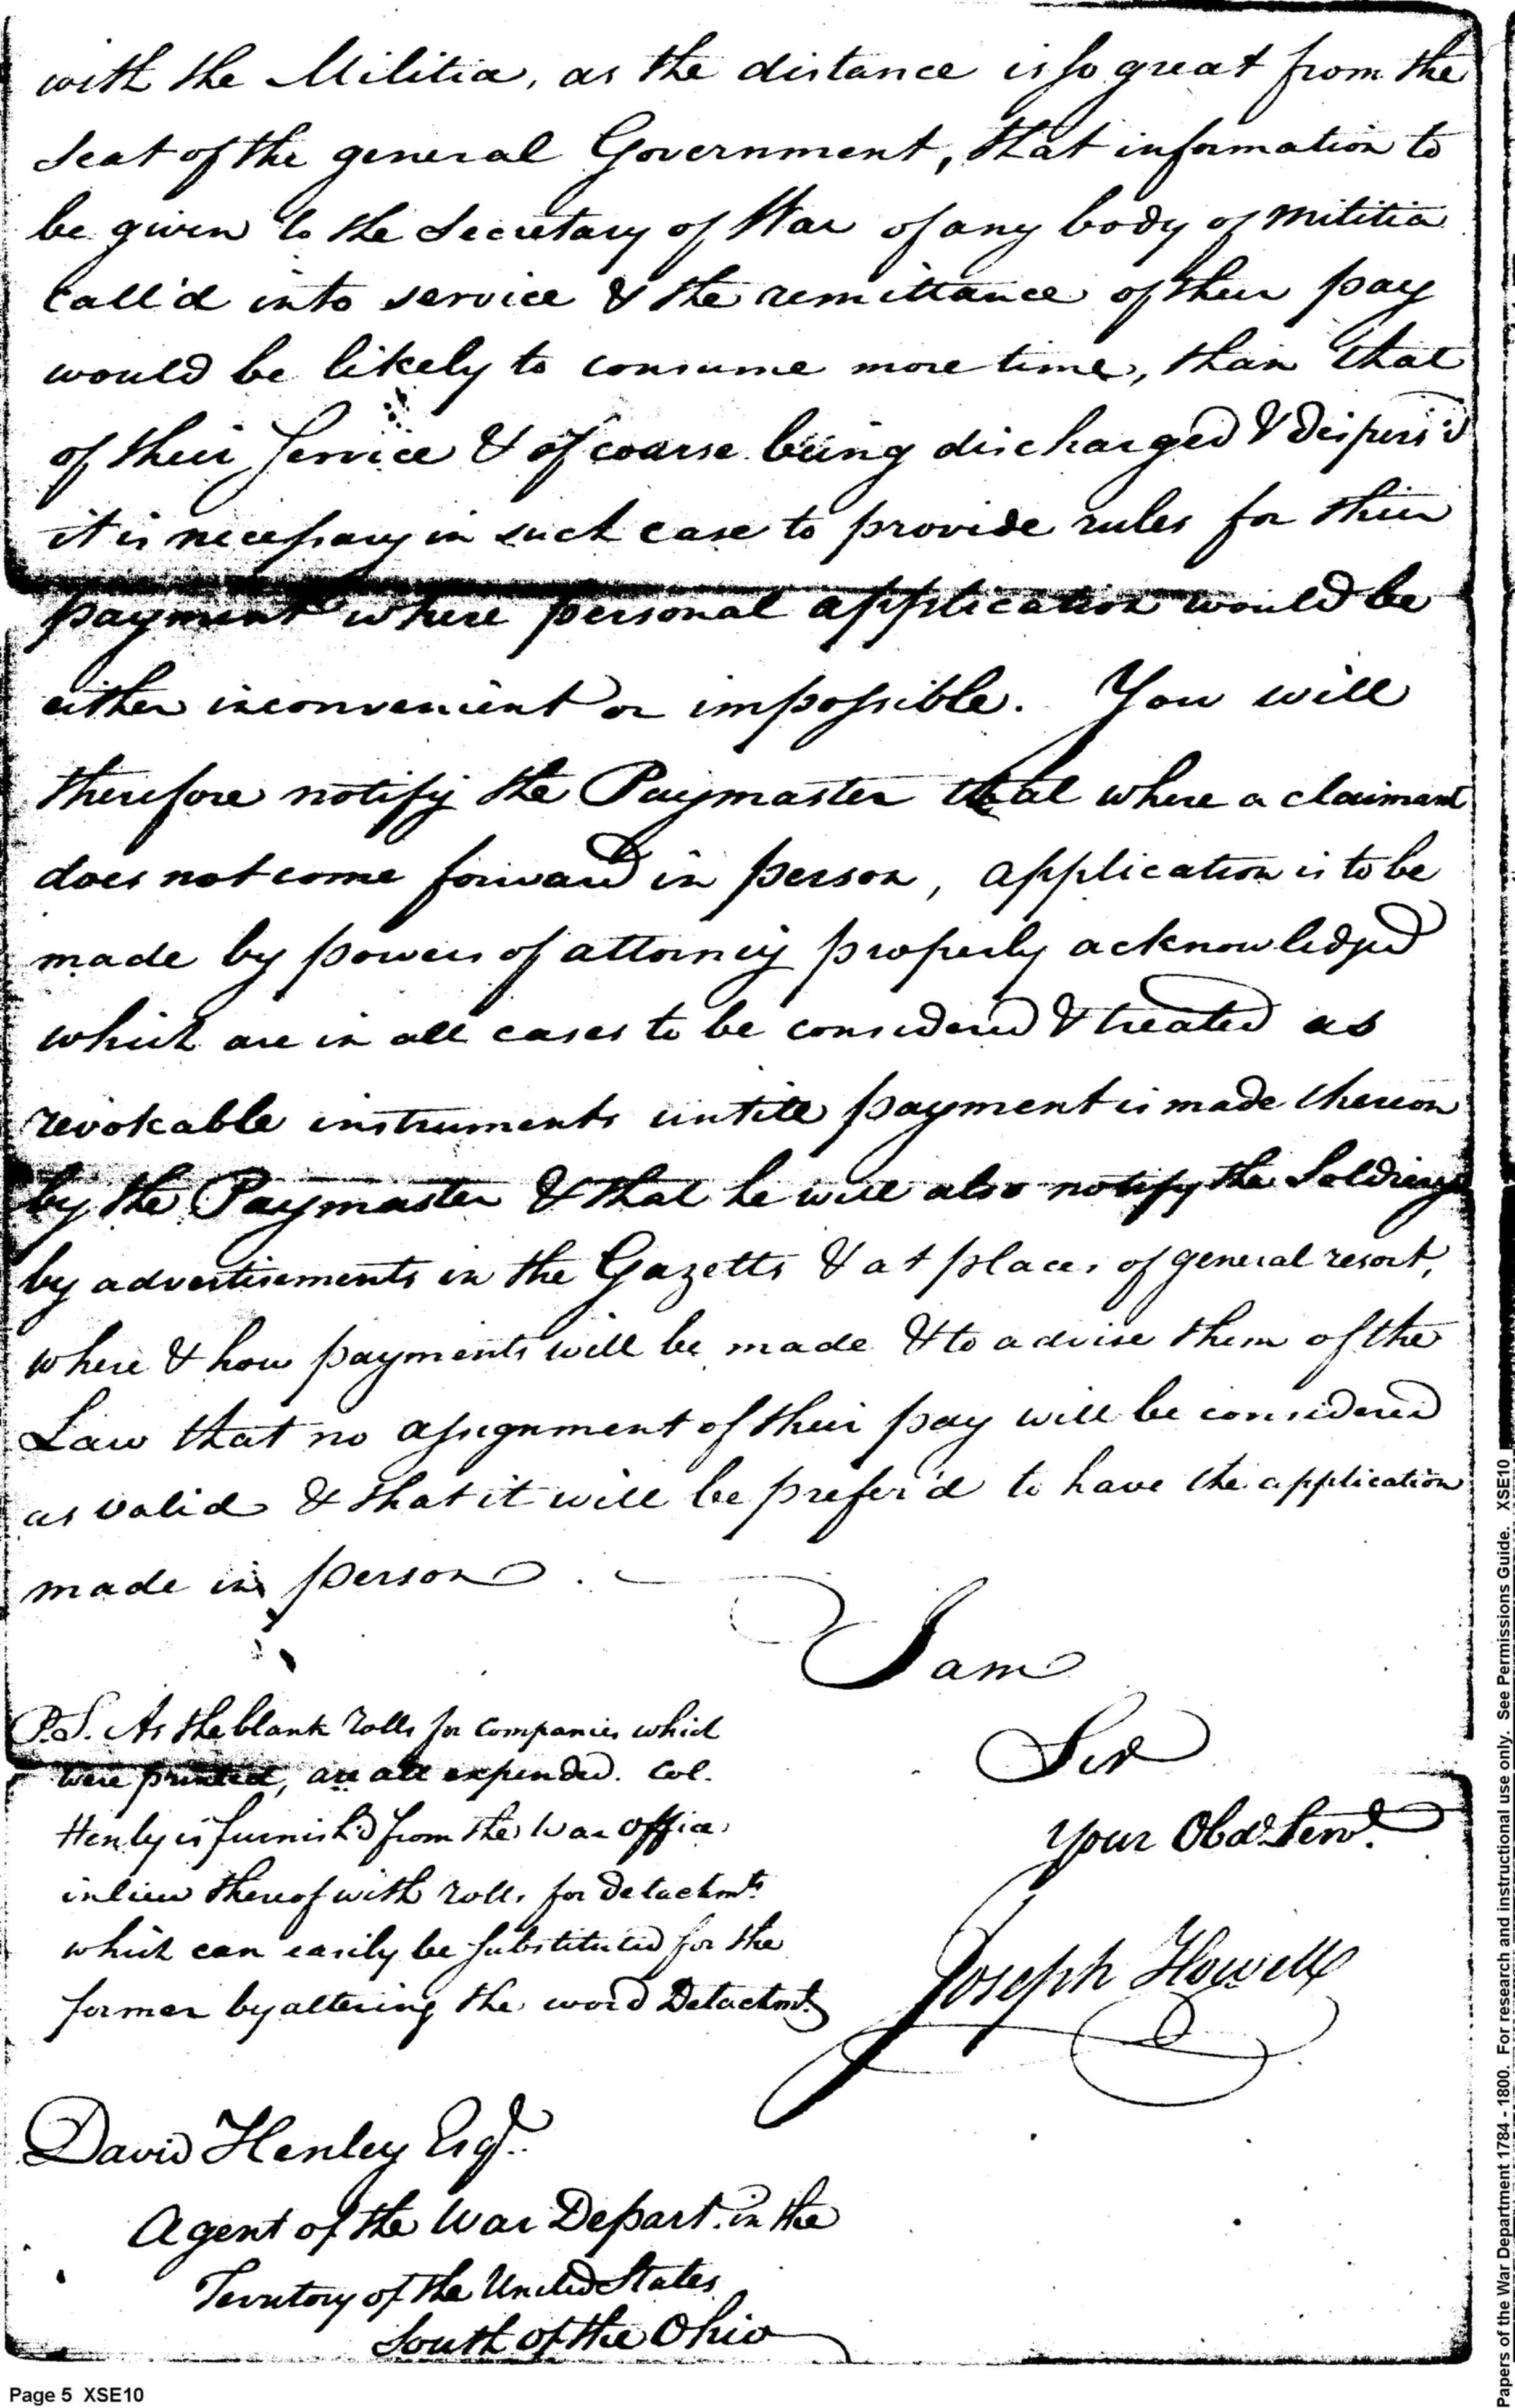 with the Militia, as the distance is so great from the
seat of the general Government, that information to
be given to the Secretary of War of any body of militia
call'd into service & the remittance of their pay
would be likely to consume more time, than that
of their service & of course being discharged & dispers'd
it is necessary in such case to provide rules for their
payment where personal application would be
either inconvenient or impossible. You will
therefore notify the Paymaster that where a claimant
does not come forward in person, application is to be
made by powers of attorney properly acknowledged
which are in all cases to be considered & treated as
revokable instruments untill payment is made thereon
by the Paymaster & that he will also notify the Soldiery
by advertisements in the Gazetts & at places of general resort,
where & how payments will be made & to advise them of the
Law that no assignment of their pay will be considered
as valid & that it will be prefer'd to have the application
made in person.
I am
Sir
Your Obdt Servt.
Joseph Howell
P.S. As the blank rolls for companies which
were printed, are all expended. Col.
Henly is furnish'd from the War office
in lieu thereof with rolls for detachmts.
which can easily be substituted for the
former by altering the word Detachmt.
David Henley Esqr.
Agent of the War Depart. in the
Territory of the United States
South of the Ohio
Page 5 XSE10
Papers of the War Department 1784 - 1800. For research and instructional use only. See Permissions Guide. XSE10